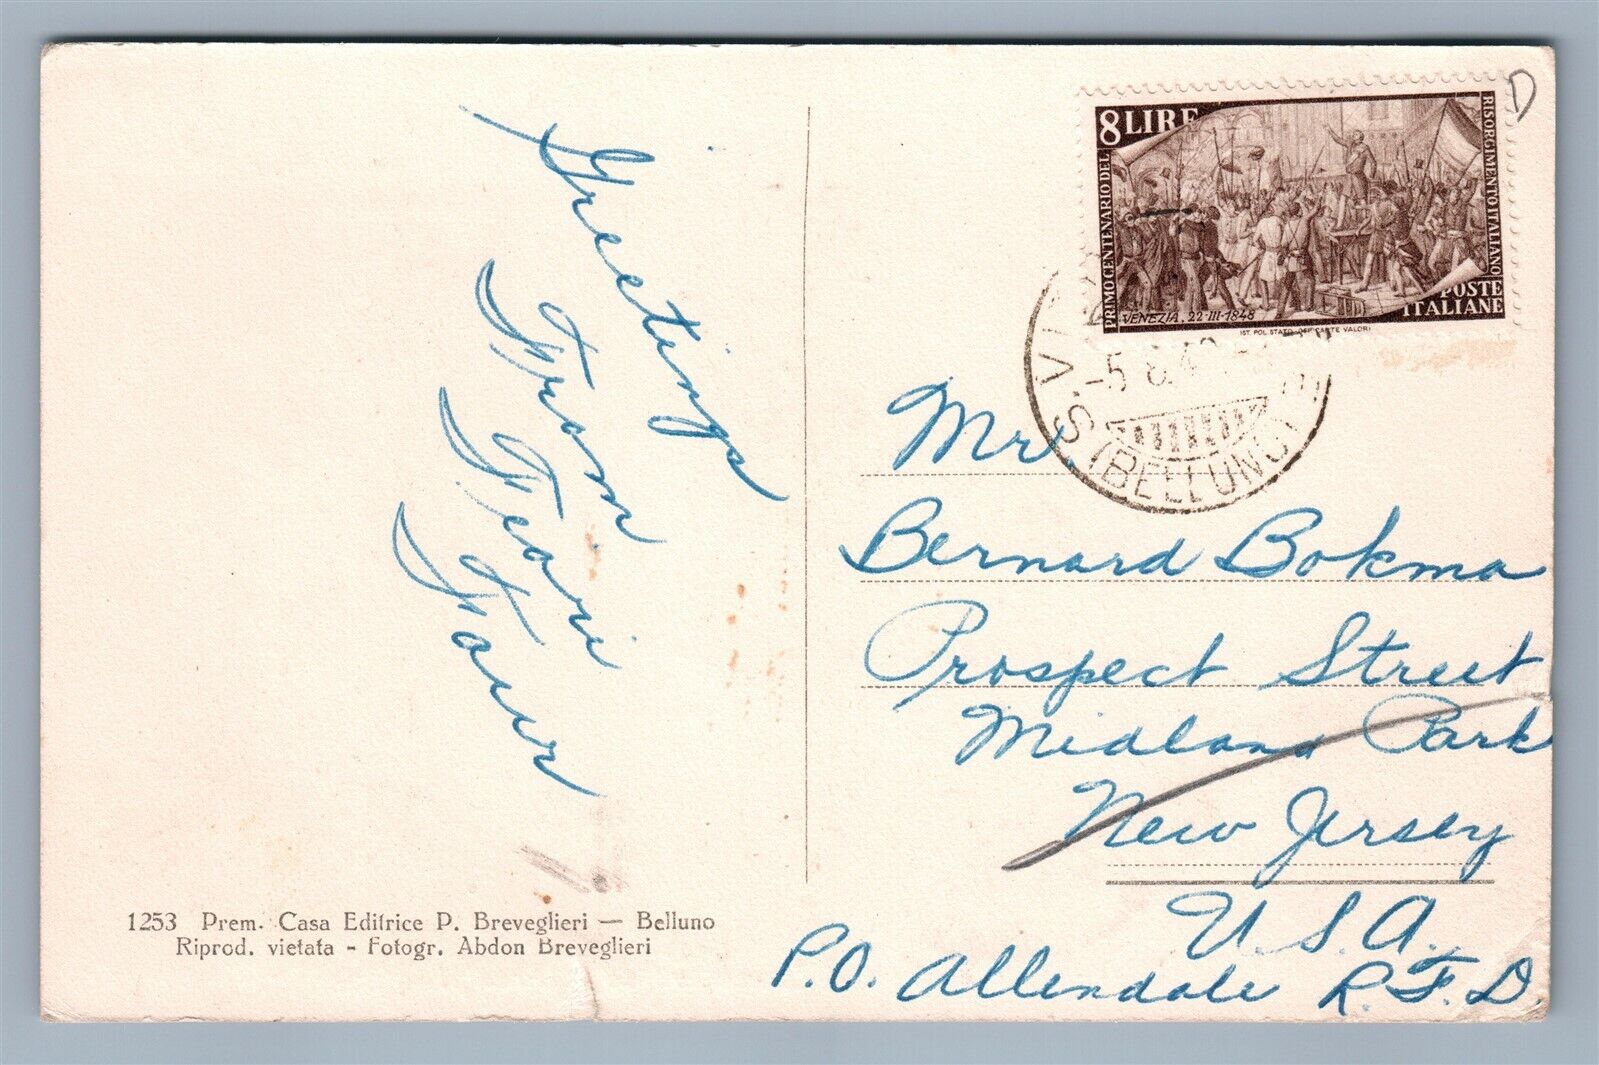 Greetings
From
Teari
Taur
1253 Prem. Casa Editrice P. Breveglieri — Belluno
Riprod. vietata - Fotogr. Abdon Breveglieri
8 LIRE
PRIMO CENTENARIO DEL
RISORGIMENTO ITALIANO
VENEZIA . 22-III-1848
POSTE
ITALIANE
IST. POL. STATO OFF. CARTE VALORI
D
-5 8
S. (BELLUNO)
Mr.
Bernard Bokma
Prospect Street
Midland Park
New Jersey
U.S.A.
P.O. Allendale R.F.D.